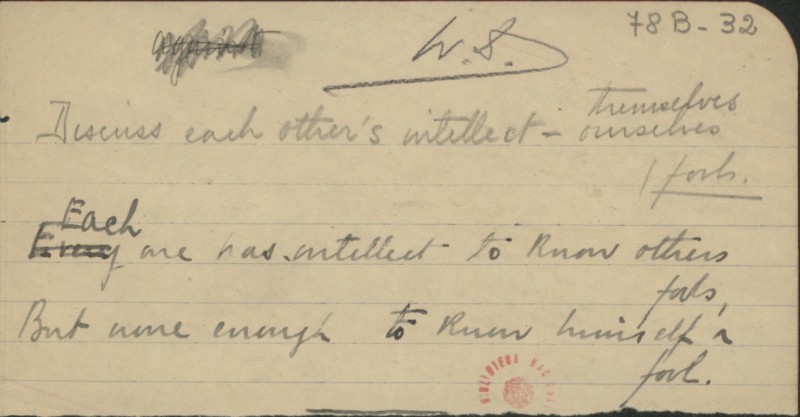 78B-32
against
W.S.
themselves
Discuss each other's intellect - ourselves
fools.
Each
Every one has intellect to know others
fools,
But none enough to know himself a
fool.
BIBLIOTECA NACIONAL